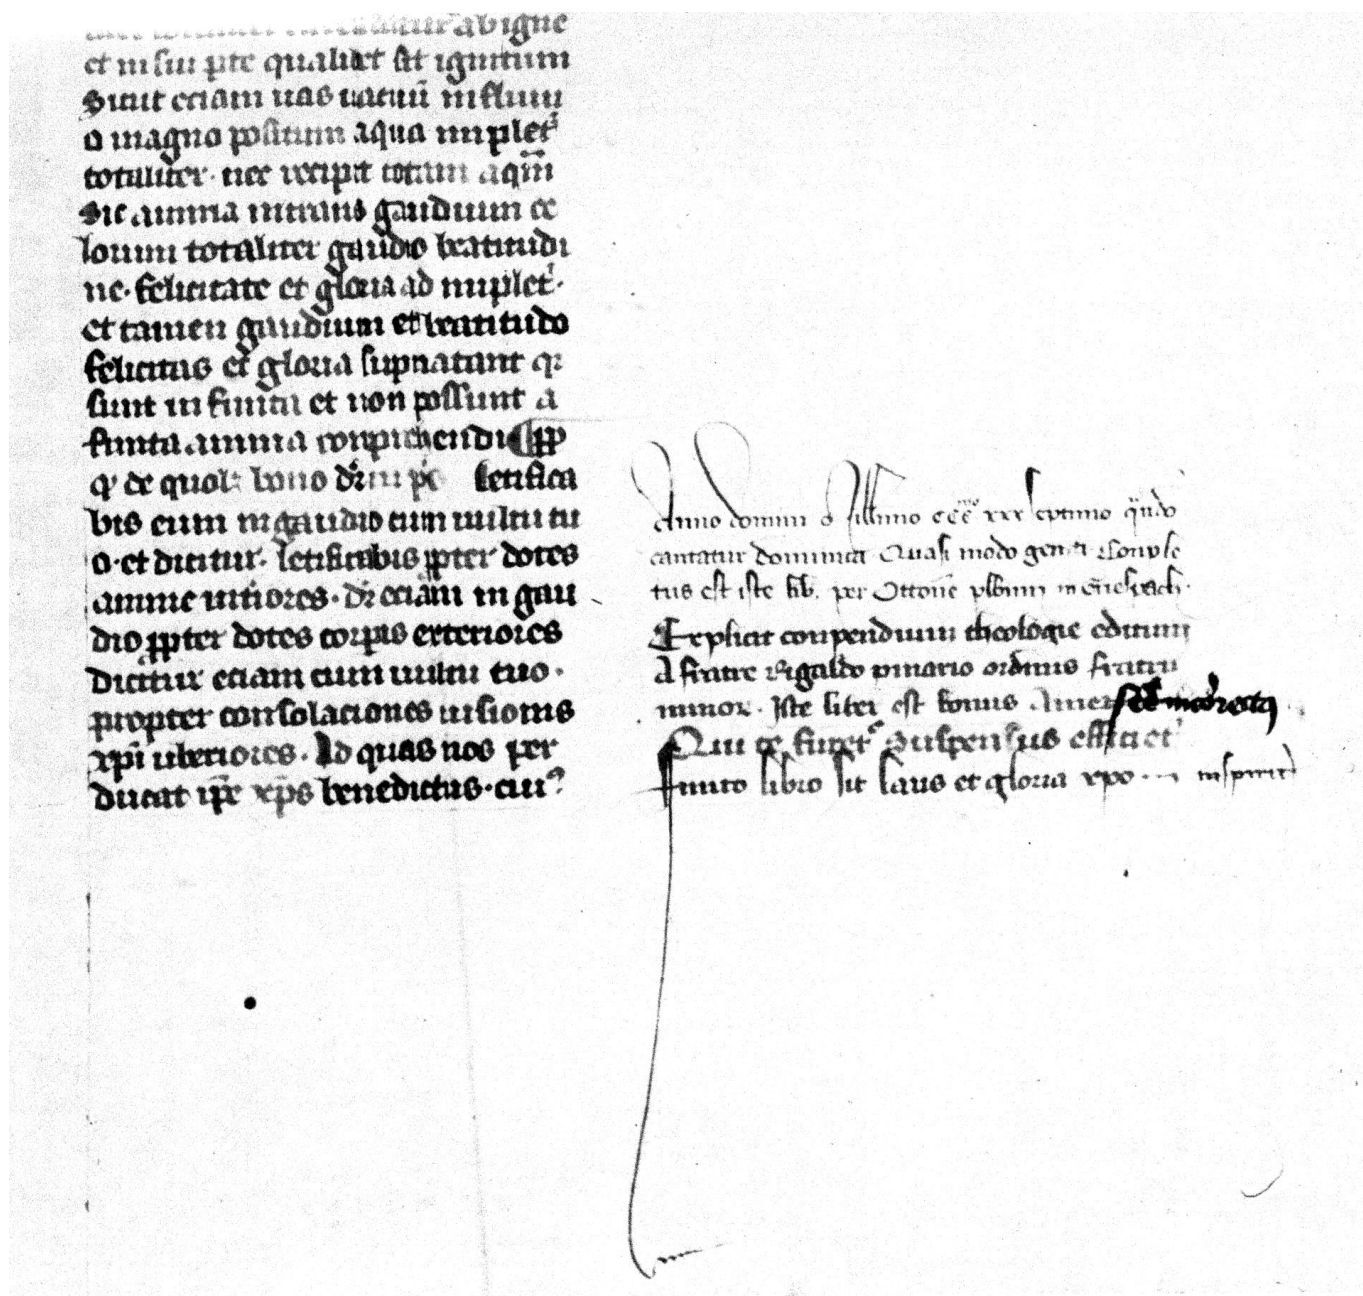 ab igne
et in sui pte qualibet sit ignitum
Sicut eciam uas uacuū in fluui
o magno positum aqua implet᷑
totaliter · nec recipit totam aqm̄
Sic anima intrans gaudium ce
lorum totaliter gaudio beatitudi
ne · felicitate et gloria ad implet᷑ ·
et tamen gaudium et beatitudo
felicitas et gloria supnatant qꝛ
sunt infinita et non possunt a
finita anima conprehendi ¶ ꝓp
qͥ de quolꝫ bono dr̄ in pͦ letifica
bis eum in gaudio cum uultu tu
o · et dicitur · letificabis ꝓpter dotes
anime intiores · dr̄ eciam in gau
dio ꝓpter dotes corpis exteriores
dicitur eciam cum uultu tuo ·
propter consolaciones uisionis
xpi uberiores · Ad quas nos per
ducat ip̄e xp̄s benedictus · cui᷑
Anno domini millimo cccc xxx septimo qn̄do
cantatur dominica Quasi modo geniti Conple
tus est iste lib. per Ottone plbnm in
Explicit conpendium theologie editum
A fratre Rigaldo ordinis fratrū
minor · Iste liber est bonus
Qui te furet᷑ Suspensus efficiet᷑
finito libro sit laus et gloria xpo